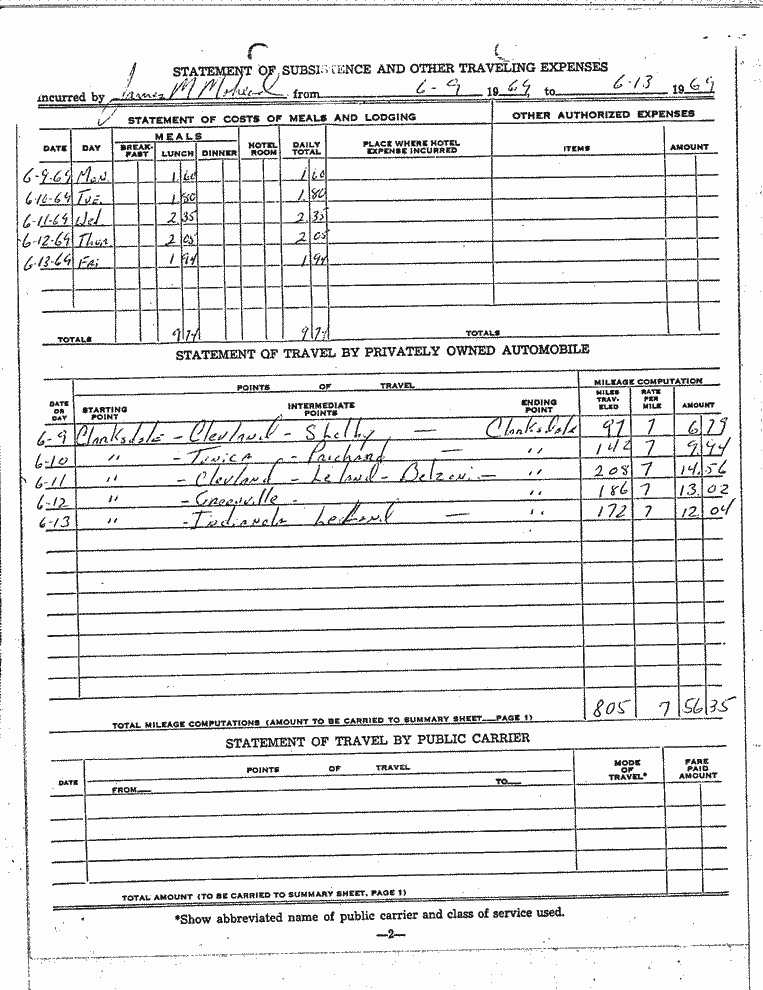 STATEMENT OF SUBSISTENCE AND OTHER TRAVELING EXPENSES
incurred by James M from 6-9 1969 to 6-13 1969
STATEMENT OF COSTS OF MEALS AND LODGING OTHER AUTHORIZED EXPENSES
DATE DAY MEALS BREAK-FAST LUNCH DINNER HOTEL ROOM DAILY TOTAL PLACE WHERE HOTEL EXPENSE INCURRED ITEMS AMOUNT
6-9-69 Mon. 1 60 1 60
6-10-69 Tue. 1 80 1 80
6-11-69 Wed 2 35 2 35
6-12-69 Thur. 2 05 2 05
6-13-69 Fri 1 94 1 94
TOTALS 9 74 9 74 TOTALS
STATEMENT OF TRAVEL BY PRIVATELY OWNED AUTOMOBILE
POINTS OF TRAVEL MILEAGE COMPUTATION
DATE OR DAY STARTING POINT INTERMEDIATE POINTS ENDING POINT MILES TRAV-ELED RATE PER MILE AMOUNT
6-9 Clarksdale - Clevland - Shelby — Clarksdale 97 7 6 79
6-10 " - Tunica - Prichard — " 142 7 9 94
6-11 " - Clevland - Leland - Belzoni - " 208 7 14 56
6-12 " - Greenville - " 186 7 13 02
6-13 " - Indianola Leland — " 172 7 12 04
TOTAL MILEAGE COMPUTATIONS (AMOUNT TO BE CARRIED TO SUMMARY SHEET—PAGE 1) 805 7 56 35
STATEMENT OF TRAVEL BY PUBLIC CARRIER
DATE POINTS OF TRAVEL MODE OF TRAVEL* FARE PAID AMOUNT
FROM— TO—
TOTAL AMOUNT (TO BE CARRIED TO SUMMARY SHEET, PAGE 1)
*Show abbreviated name of public carrier and class of service used.
—2—